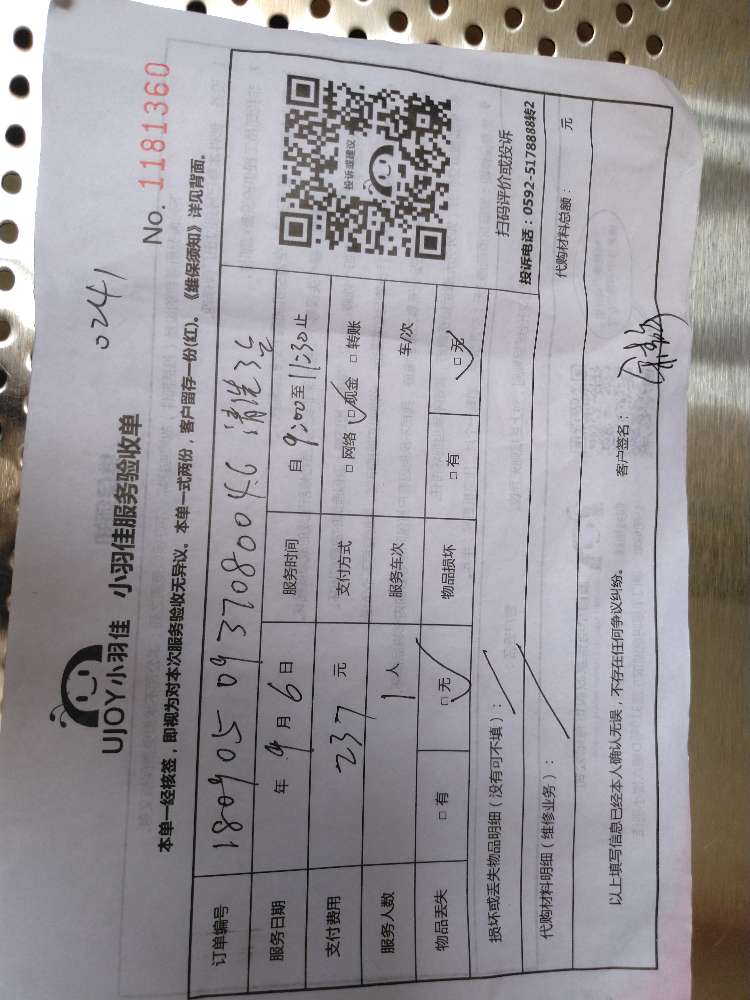 0241
UJOY小羽佳 小羽佳服务验收单
No. 1181360
本单一经核签，即视为对本次服务验收无异议。本单一式两份，客户留存一份(红)。《维保须知》详见背面。
订单编号 180905093708004.6 清洗3台
服务日期 年 9 月 6 日 服务时间 自 9:00 至 11:30 止
支付费用 237 元 支付方式 □ 网络 □ 现金 □ 转账
服务人数 1 人 服务车次 车/次
物品丢失 □ 有 □ 无 物品损坏 □ 有 □ 无
投诉或建议
扫码评价或投诉
投诉电话：0592-5178888转2
损坏或丢失物品明细（没有可不填）：
代购材料明细（维修业务）： 代购材料总额： 元
以上填写信息已经本人确认无误，不存在任何争议纠纷。 客户签名：